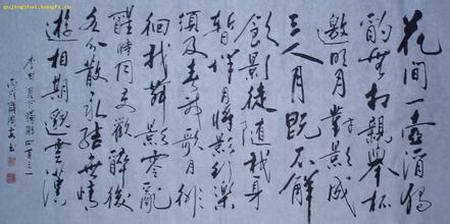 花間一壺酒獨
酌無相親舉杯
邀明月對影成
三人月既不解
飲影徒隨我身
暫伴月將影行樂
須及春我歌月徘
徊我舞影零亂
醒時同交歡醉後
各分散永結無情
遊相期邈雲漢
李白月下獨酌四首之一